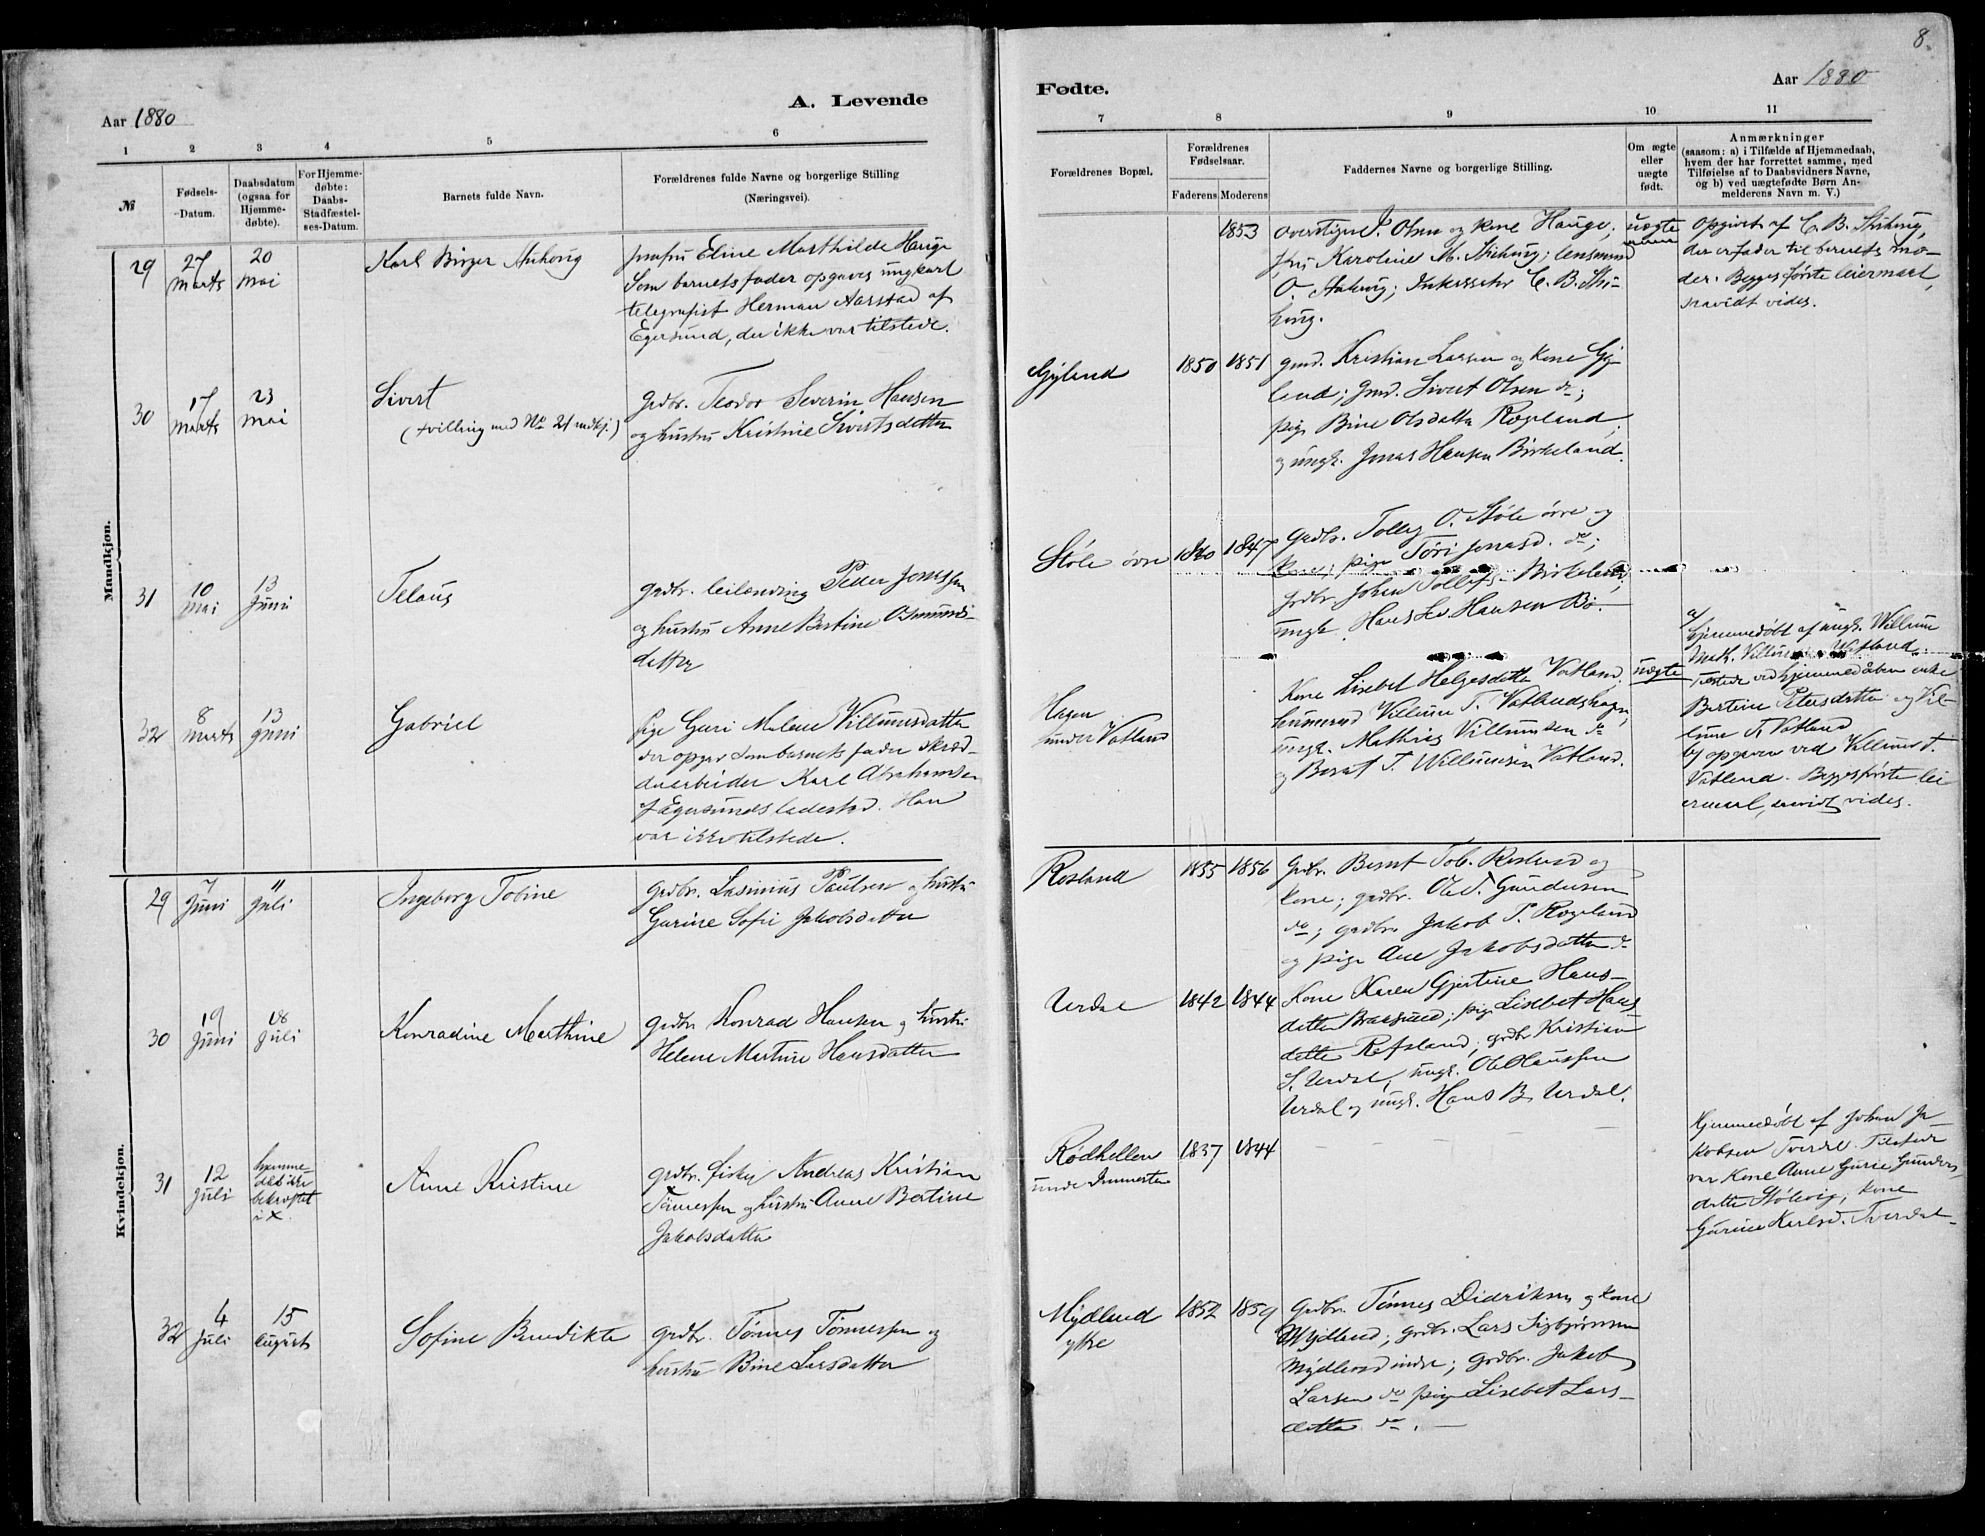 8.
Aar 1880
A. Levende
Fødte.
Aar 1880
1 2 3 4 5 6
7 8 9 10 11
№
Fødsels-
Datum.
Daabsdatum
(ogsaa for
Hjemme-
døbte).
For Hjemme-
døbte:
Daabs-
Stadfæstel-
ses-Datum.
Barnets fulde Navn.
Forældrenes fulde Navne og borgerlige Stilling
(Næringsvei).
Forældrenes Bopæl.
Forældrenes
Fødselsaar.
Faderens Moderens
Faddernes Navne og borgerlige Stilling.
Om ægte
eller
uægte
født.
Anmærkninger
(saasom: a) i Tilfælde af Hjemmedaab,
hvem der har forrettet samme, med
Tilføielse af to Daabsvidners Navne,
og b) ved uægtefødte Børn An-
melderens Navn m. V.)
Mandkjøn.
29
27
Marts
20
Mai
Karl Birger
Eline Marthilde Hauge
Som barnets fader opgaves ungkarl
telegrafist Herman Aarstad af
Egersund, der ikke var tilstede.
1853
Olsen og kone Hauge;
Karoline M. lensmand
O. C. B.
uægte
Opgivet af C. B.
der er fader til barnets mo-
der. Begges første leiermaal,
saavidt vides.
30
17
Marts
23
Mai
Sivert
(tvilling med No 21 mdkj.)
grdbr. Teodor Severin Hansen
og hustru Kristine Sivertsdatter
Gyland
1850 1851
gmd. Kristian Larsen og kone Gy-
land; gmd. Sivert Olsen do;
pige Bine Olsdatter Rægeland
og ungk. Jonas Hansen Birkeland.
31
10
Mai
13
Juni
Telaus
grdbr. leilænding Peder Jonassen
og hustru Anne Bertine Osmunds-
datter
Støle øvre
1840 1847
Grdbr. Tolleg O. Støle øvre og
kone; pige Tøri Jonasd. do;
grdbr. Johan Tollefs. Birkeland;
ungk. Hans Hansen Bø.
32
8
Marts
13
Juni
Gabriel
pige Guri Malene Villumsdatter
der opgav som barnets fader skræd-
derarbeider Karl Abrahamsen
af Egersunds ladestad. Han
var ikke tilstede.
Hagen
under Vatland
Kone Lisebet Helgesdatter Vatland,
husmand Villum T. Vatlandshagen,
ungk. Mathias Villumsen do
og Bernt T. Willumsen Vatland.
uægte
a/
hjemmedøbt af ungk. Willum
Math. Villumsen Vatland.
Tilstede ved hjemmedåben enke
Bertine Petersdatter og Vil-
lum T. Vatland
b/ opgiven ved Villum T.
Vatland. Begges første lei-
ermaal, saavidt vides.
Kvindekjøn.
29
7
Juni
11
Juli
Ingeborg Tobine
grdbr. Rasmus Paulsen og hustru
Gurine Sofie Jakobsdatter
Rosland
1855 1856
Grdbr. Bernt Tob. Rosland og
kone; grdbr. Ole T. Gundersen
do; grdbr. Jakob T. Rægeland
og pige Ane Jakobsdatter do
30
19
Juni
18
Juli
Konradine Marthine
grdbr. Konrad Hansen og hustru
Helene Martine Hansdatter
Urdal
1842 1844
Kone Karen Gjertine Hans-
datter; pige Lisebet Hans
datter Refsland; grdbr Kristian
S. Urdal, ungk. Ole Hanssen
Urdal og ungk. Hans B. Urdal.
31
12
Juli
hjemme-
døbt ikke
bekræftet
i X.
Anne Kristine
grdbr. fisker Andreas Kristian
Tønnessen og hustru Anne Bertine
Jakobsdatter
Rødhellen
under
1837 1844
Hjemmedøbt af Johan Ja-
kobsen Tverdal. Tilstede
var Kone Anne Gurie Gunders-
datter Stølevig, kone
Gurine Karlsd. Tverdal
32
4
Juli
15
August
Sofine Benedikte
grdbr. Tønnes Tønnessen og
hustru Bine Larsdatter
Mydland
ytre
1852 1859
Grdbr. Tønnes Didriksen og kone
Mydland; grdbr. Lars Sigbjørnsen
Mydland indre; grdbr. Jakob
Larsen do pige Lisebet Lars-
datter do.